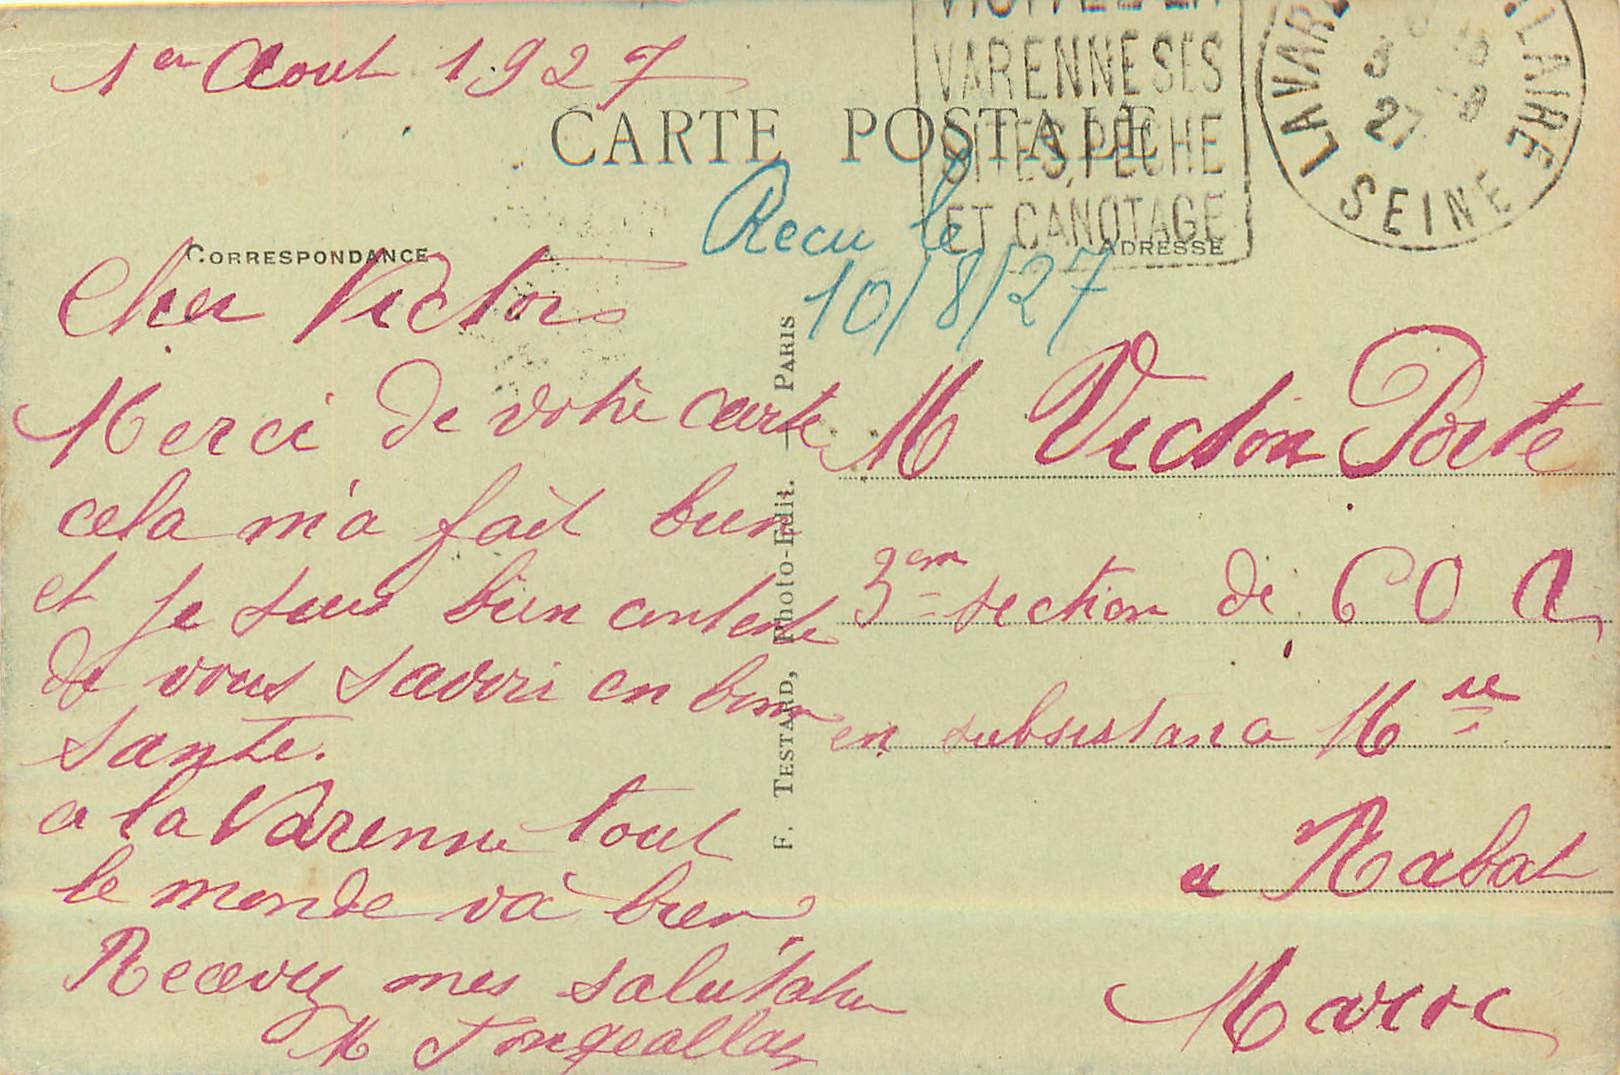 1er Aout 1927
CARTE POSTALE
VARENNE SES
SITES, PECHE
ET CANOTAGE
LA VARENNE HILAIRE
SEINE
27
CORRESPONDANCE
ADRESSE
Recu le
10/8/27
Cher Victor
Merci de votre carte
cela m'a fait bien
et je suis bien contente
de vous savoir en bonne
sante.
a la Varenne tout
le monde va bien,
Recevez mes salutation
M
F. TESTARD, Photo-Edit. — PARIS
M Victor Porte
3em section de C O A
en subsistance Mre
a Rabat
Maroc